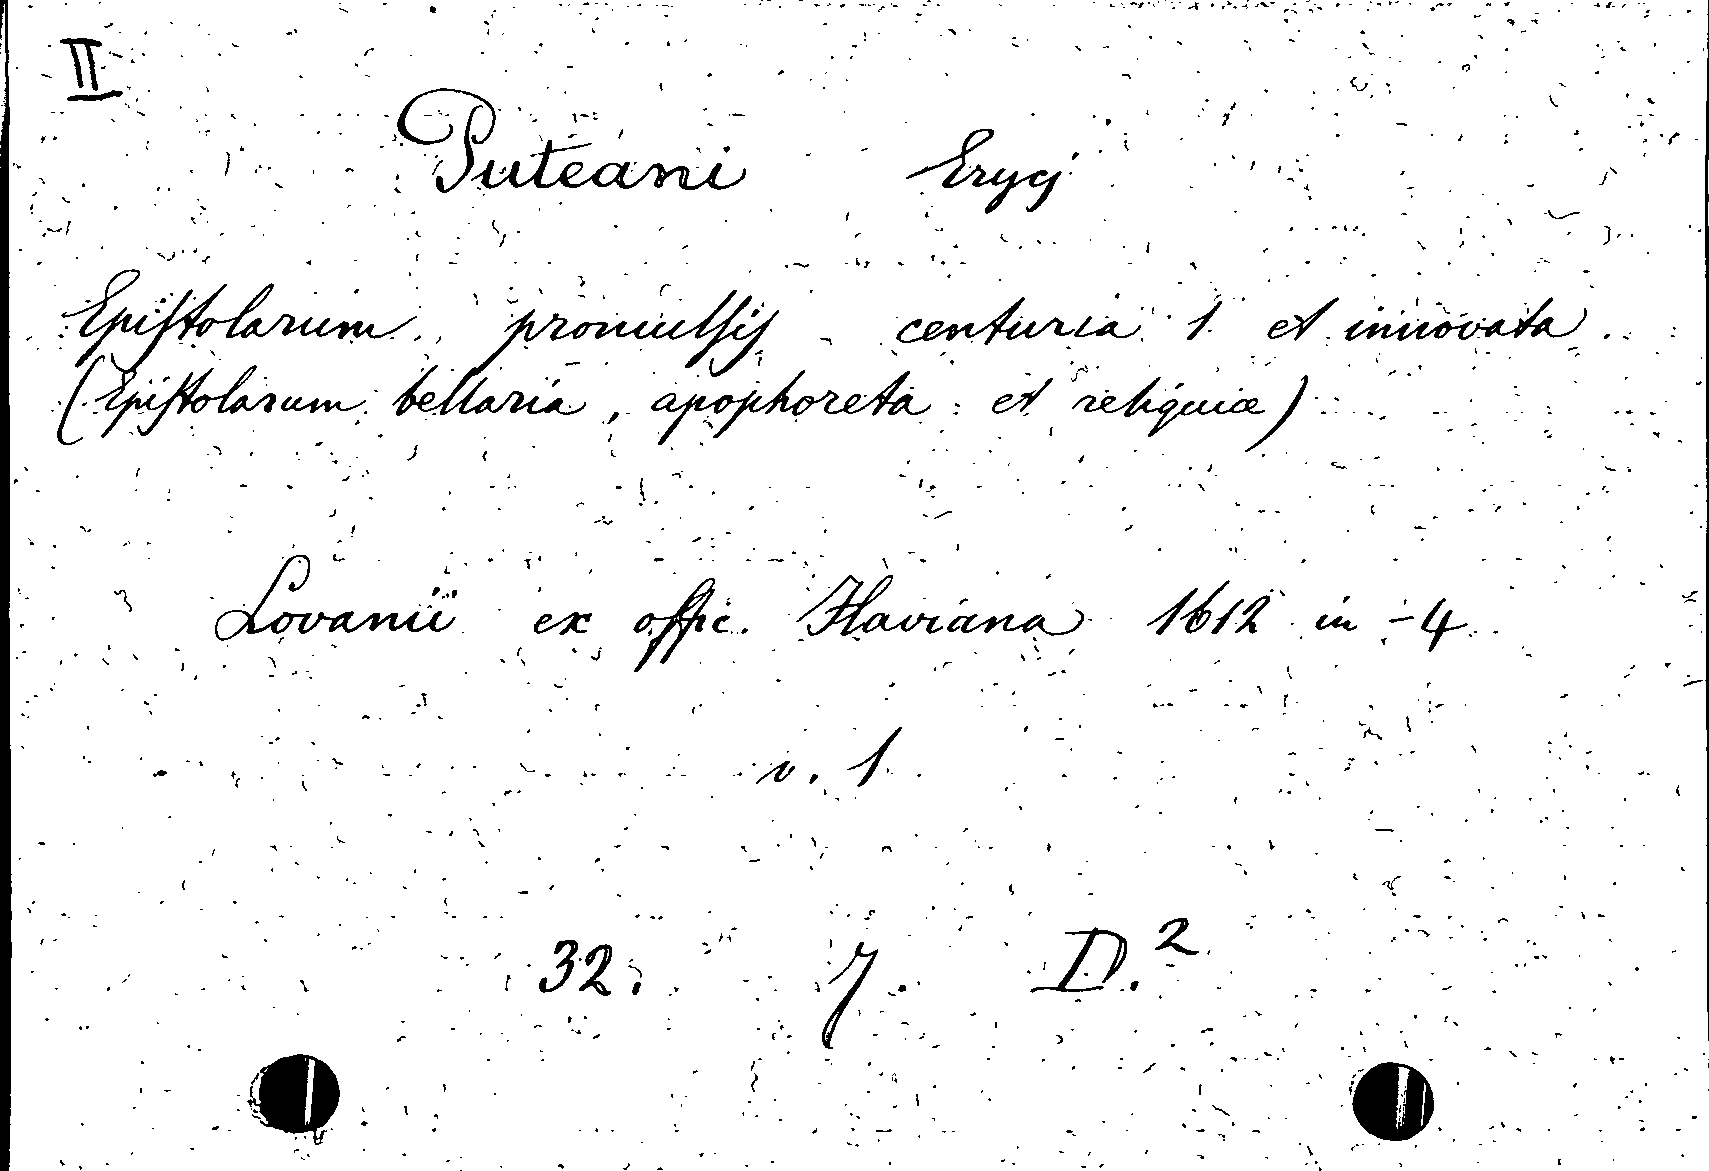 II
Puteani Erycj
Epistolarum promulsis centuria 1 et innovata
(Epistolarum bellaria, apophoreta et reliquiæ)
Lovanii ex offic. Flaviana 1612 in-4
v. 1
32. 7. D.²